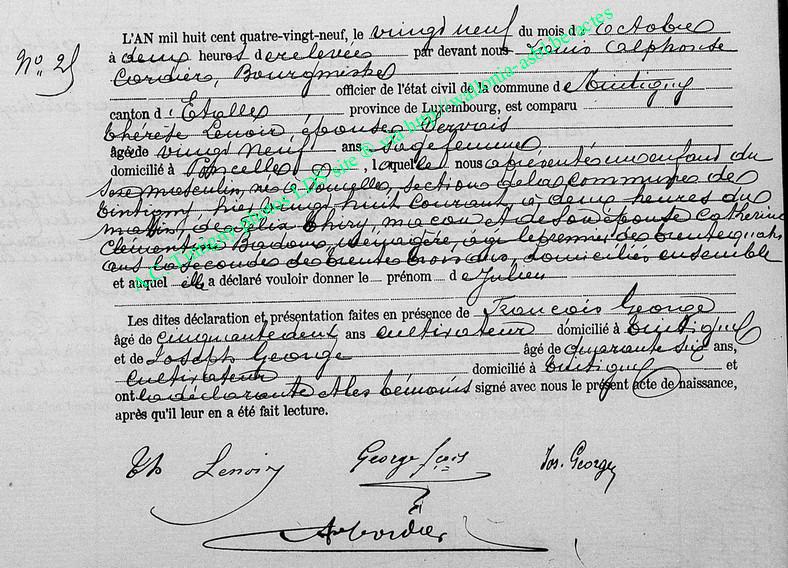 No 25
L'AN mil huit cent quatre-vingt-neuf, le vingt neuf du mois d'octobre
à deux heures de relevée par devant nous Louis Alphonse
Cordier, Bourgmestre
officier de l'état civil de la commune de Tintigny
canton d'Etalle, province de Luxembourg, est comparu
Thérèse Lenoir, épouse Gervais
âgée de vingt neuf ans sagefemme
domicilié à Poncelle, laquelle nous a présenté un enfant du
sexe masculin, né à Poncelle, section de la commune de
Tintigny, hier vingt huit courant, à deux heures du
matin, de Thiry, maçon et de son épouse Catherine
Clémentine Badoux, ménagère, âgé le premier de trente quatre
ans la seconde de trente trois ans, domiciliés ensemble
et auquel elle a déclaré vouloir donner le prénom de Julien
Les dites déclaration et présentation faites en présence de François George
âgé de cinquante deux ans cultivateur domicilié à Tintigny
et de Joseph George âgé de quarante six ans,
cultivateur domicilié à Tintigny et
ont la déclarante et les témoins signé avec nous le présent acte de naissance,
après qu'il leur en a été fait lecture.
Th Lenoir George fçois Jos. George
A Cordier